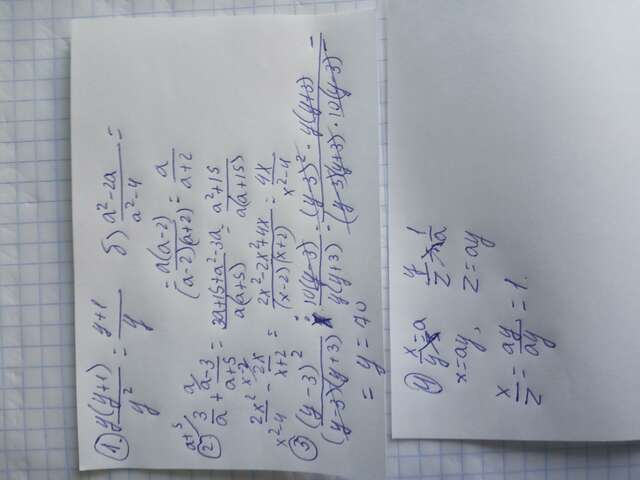 1. y(y+1)/y² = y+1/y б) a²-2a/a²-4 =
= a(a-2)/(a-2)(a+2) = a/a+2
2) 3/a + a-3/a+5 = 3a+15+a²-3a/a(a+5) = a²+15/a(a+15)
2x²/x²-4 - 2x/x+2 = 2x²-2x²+4x/(x-2)(x+2) = 4x/x²-4
3) (y-3)²/(y-3)(y+3) : 10(y-3)/y(y+3) = (y-3)²·y(y+3)/(y-3)(y+3)·10(y-3) =
= y =
4) x/y = a y/z = 1/a
x=ay, z=ay
x/z = ay/ay = 1.